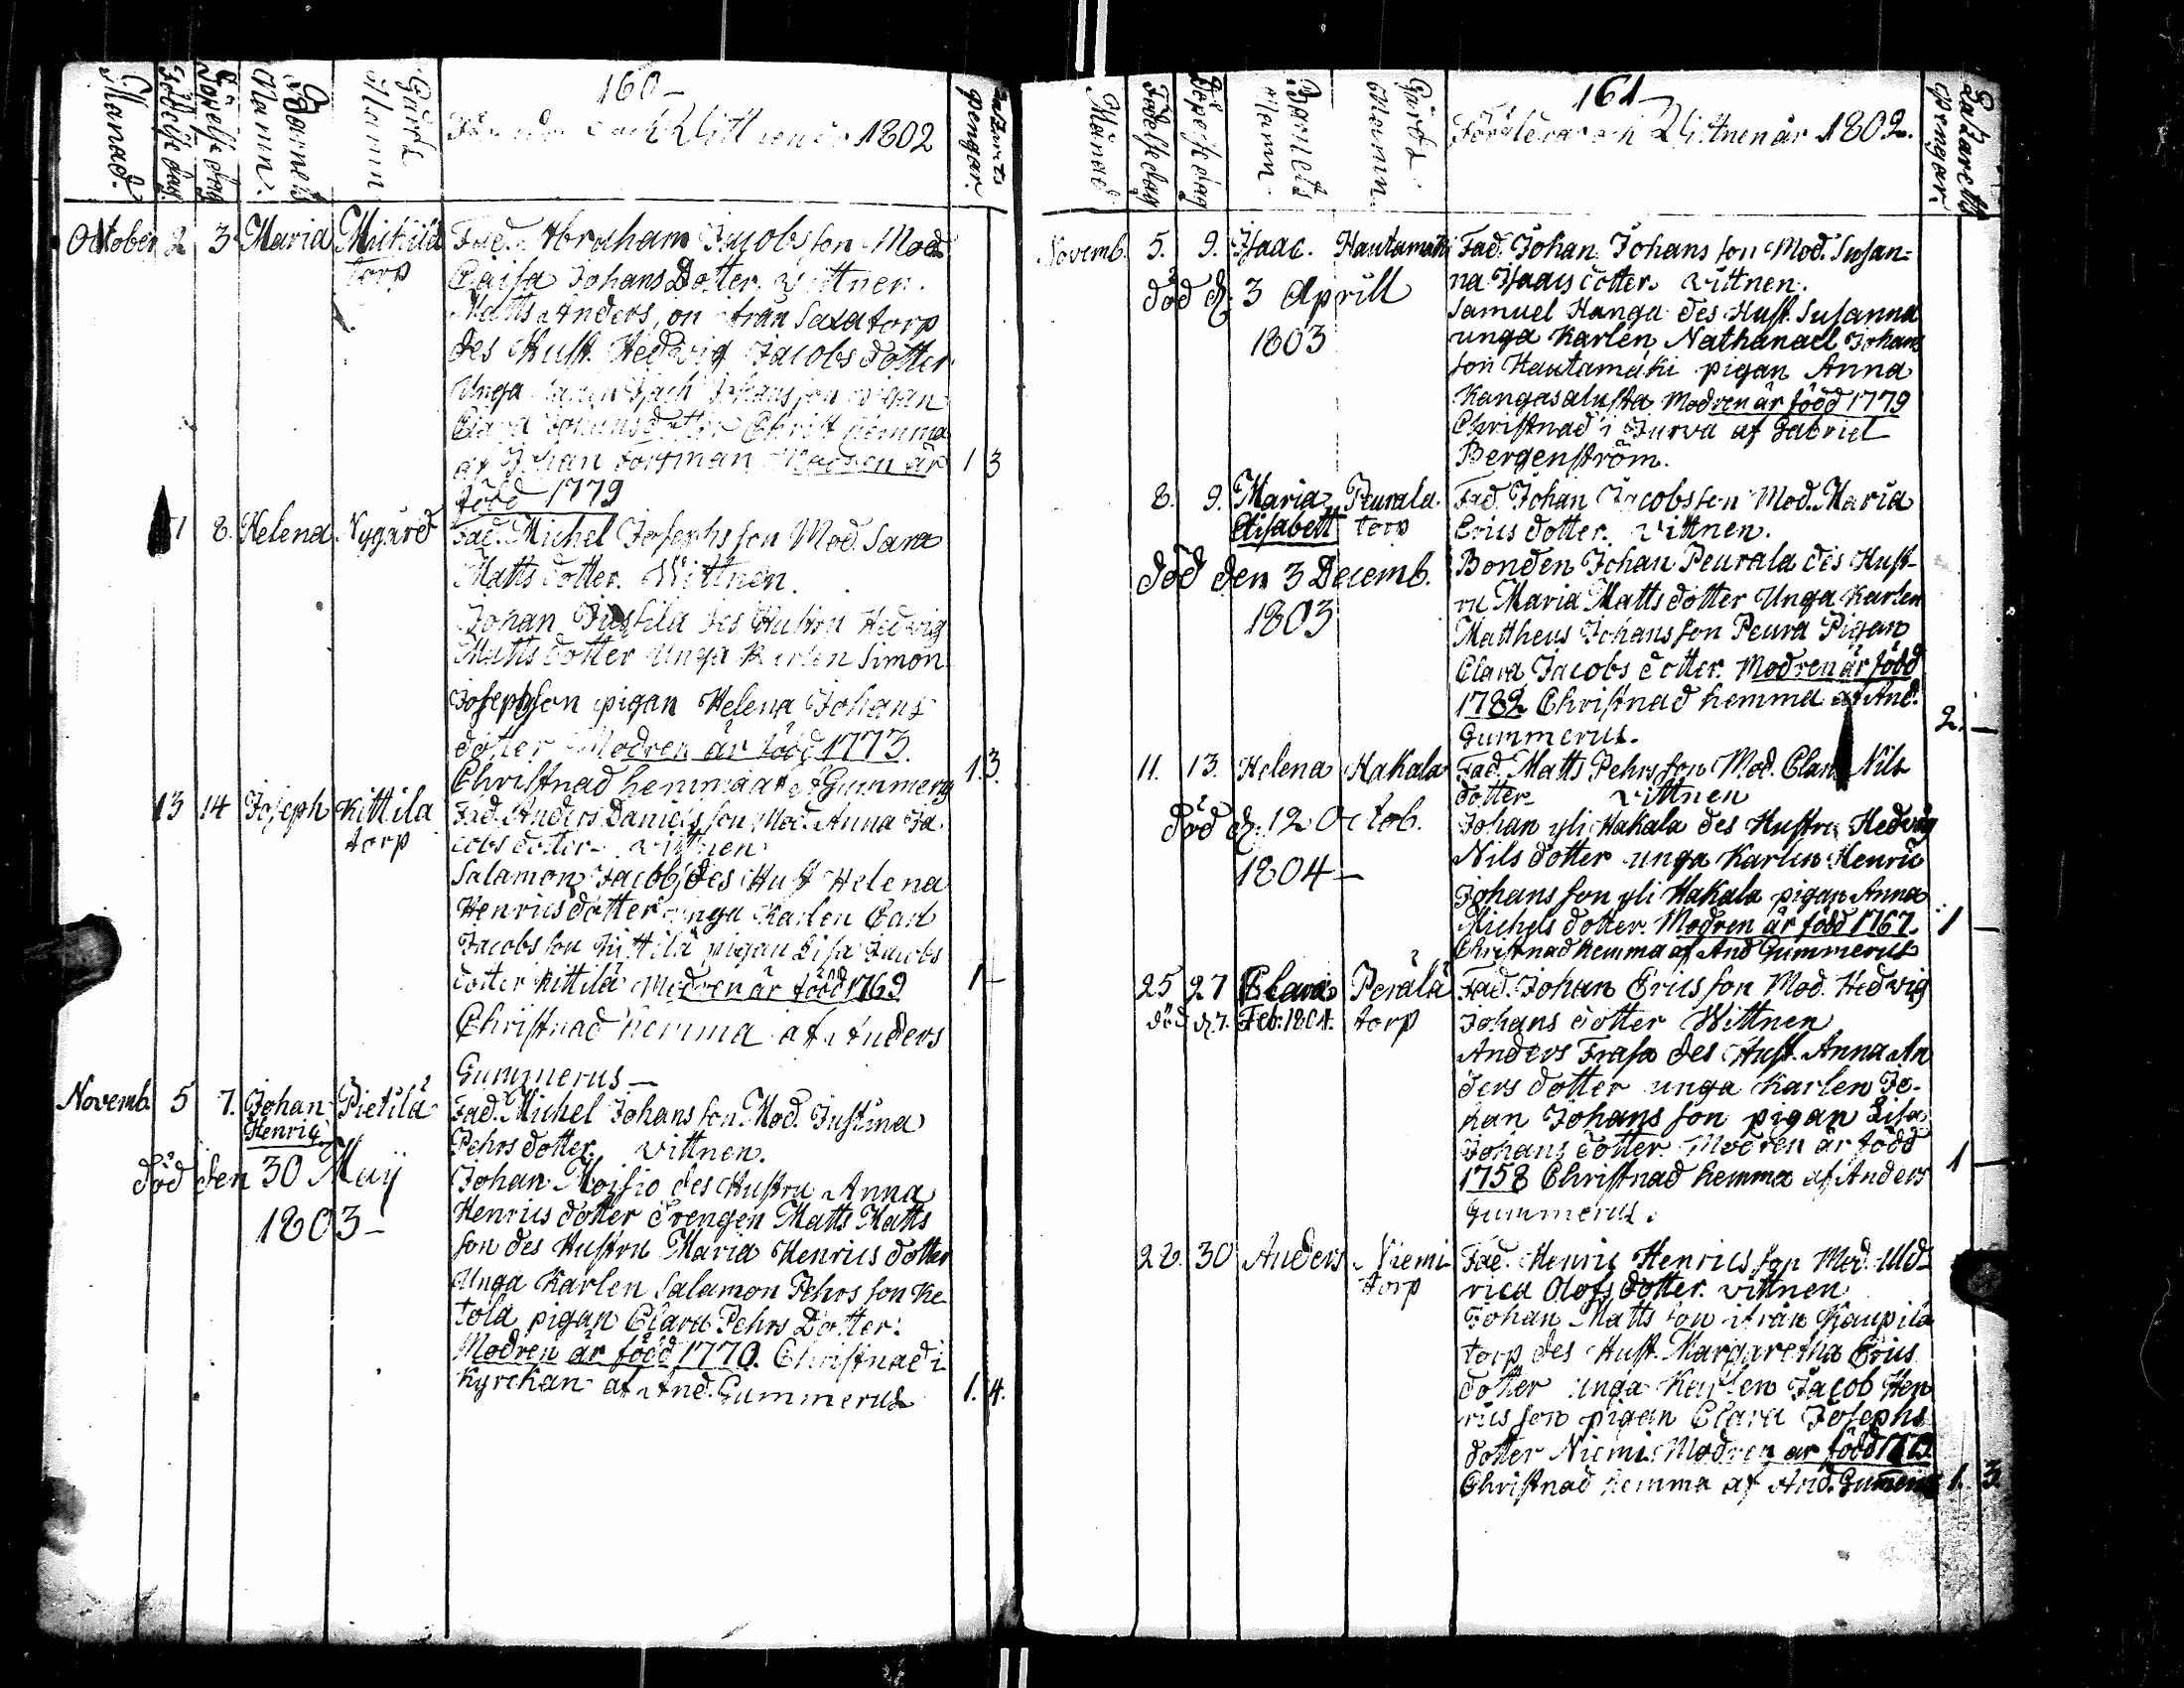 160
Månad.
Födelse dag.
Döpelse dag
Barnets Namn.
Gårds Namn
1802
Lazaretts Pengar.
October 2 3 Maria Mickilä torp Fad. Abraham Jacobs son Mod.
Caisa Johans Dotter. Vittnen.
Matts Anders son från Saxa torp
des Hust. Hedvig Jacobs dotter
Unga Johans son pigan
Clara Johans dotter Christ hemma
af Johan Forsman Modren är 1 3
född 1779
8. Helena Nygård Fad. Michel Josephs son Mod. Sara
Matts dotter. Wittnen.
Johan des Hustru Hedvig
Matts dotter Unga Karlen Simon
Josephson pigan Helena Johans
dotter Modren är född 1773.
Christnad hemma af A Gummerus 1. 3.
13 14 Joseph Kittila torp Fad. Anders Daniels son Mod. Anna Ja-
cobs dotter - vittnen
Salamon Jacobs, des Hust Helena
Henrics dotter unga Karlen Carl
Jacobs son Kittilä pigan Lisa Jacobs
dotter Kittilä Modren är född 1769 1 -
Christnad hemma af Anders
Gummerus —
Novemb. 5 7. Johan Henric Pietilä Fad. Michel Johans son. Mod. Justina
Pehrs dotter. vittnen.
död den 30 Maij 1803 -
Johan Moisio des Hustru Anna
Henrics dotter drengen Matts Matts
son des Hustru Maria Henrics dotter
Unga Karlen Salamon Pehrs son Ke-
tola pigan Clara Pehrs Dotter:
Modren är född 1770. Christnad i
Kyrckan af And. Gummerus 1. 4.
161
Månad
Födelse dag
Döpelse dag
Barnets Namn.
Gårds Namn.
Föräldrar och Vittnen år 1802.
Lazaretts Pengar.
Novemb. 5. 9. Isaac. Hautamäki Fad. Johan Johans son Mod. Susan=
na Isaacs dotter. vittnen.
död d. 3 Aprill 1803
Samuel Hanga des Hust. Susanna
unga Karlen Nathanael Johans
son Hautamäki pigan Anna
Kangasalusta Modren är född 1779
Christnad i Jurva af Gabriel
Bergenström.
8. 9. Maria Elisabett Peurala torp Fad. Johan Jacobs son Mod. Maria
Erics dotter. vittnen.
död den 3 Decemb. 1803
Bonden Johan Peurala des Hust-
ru Maria Matts dotter Unga Karlen
Mattheus Johans son Peura Pigan
Clara Jacobs dotter. Modren är född
1782 Christnad hemma af And. 2. -
Gummerus.
11. 13. Helena Hakala Fad. Matts Pehrs son Mod. Clara Nils
dotter vittnen
död d. 12 Octob. 1804 —
Johan yli Hakala des Hustru Hedvig
Nils dotter unga Karlen Henric
Johans son yli Hakala pigan Anna
Michels dotter. Modren är född 1767. 1 -
Christnad hemma af And Gummerus
25 27 Clara Perälä torp Fad. Johan Erics son Mod. Hedvig
död d. 7. Feb. 1804. Johans dotter Wittnen
Anders Frasa des Hust. Anna An
ders dotter unga Karlen Jo-
han Johans son pigan Lisa
Johans dotter Modren är född
1758 Christnad hemma af Anders 1 -
Gummerus.
28. 30 Anders Niemi torp Fad. Henric Henrics son Mod. Uld-
rica Olofs dotter. vittnen
Johan Matts son ifrån Kaupila
torp des Hust. Margaretha Erics
dotter unga Karlen Jacob Hen
rics son pigan Clara Josephs
dotter Niemi Modren är född
Christnad hemma af And. Gummerus 1. 3.